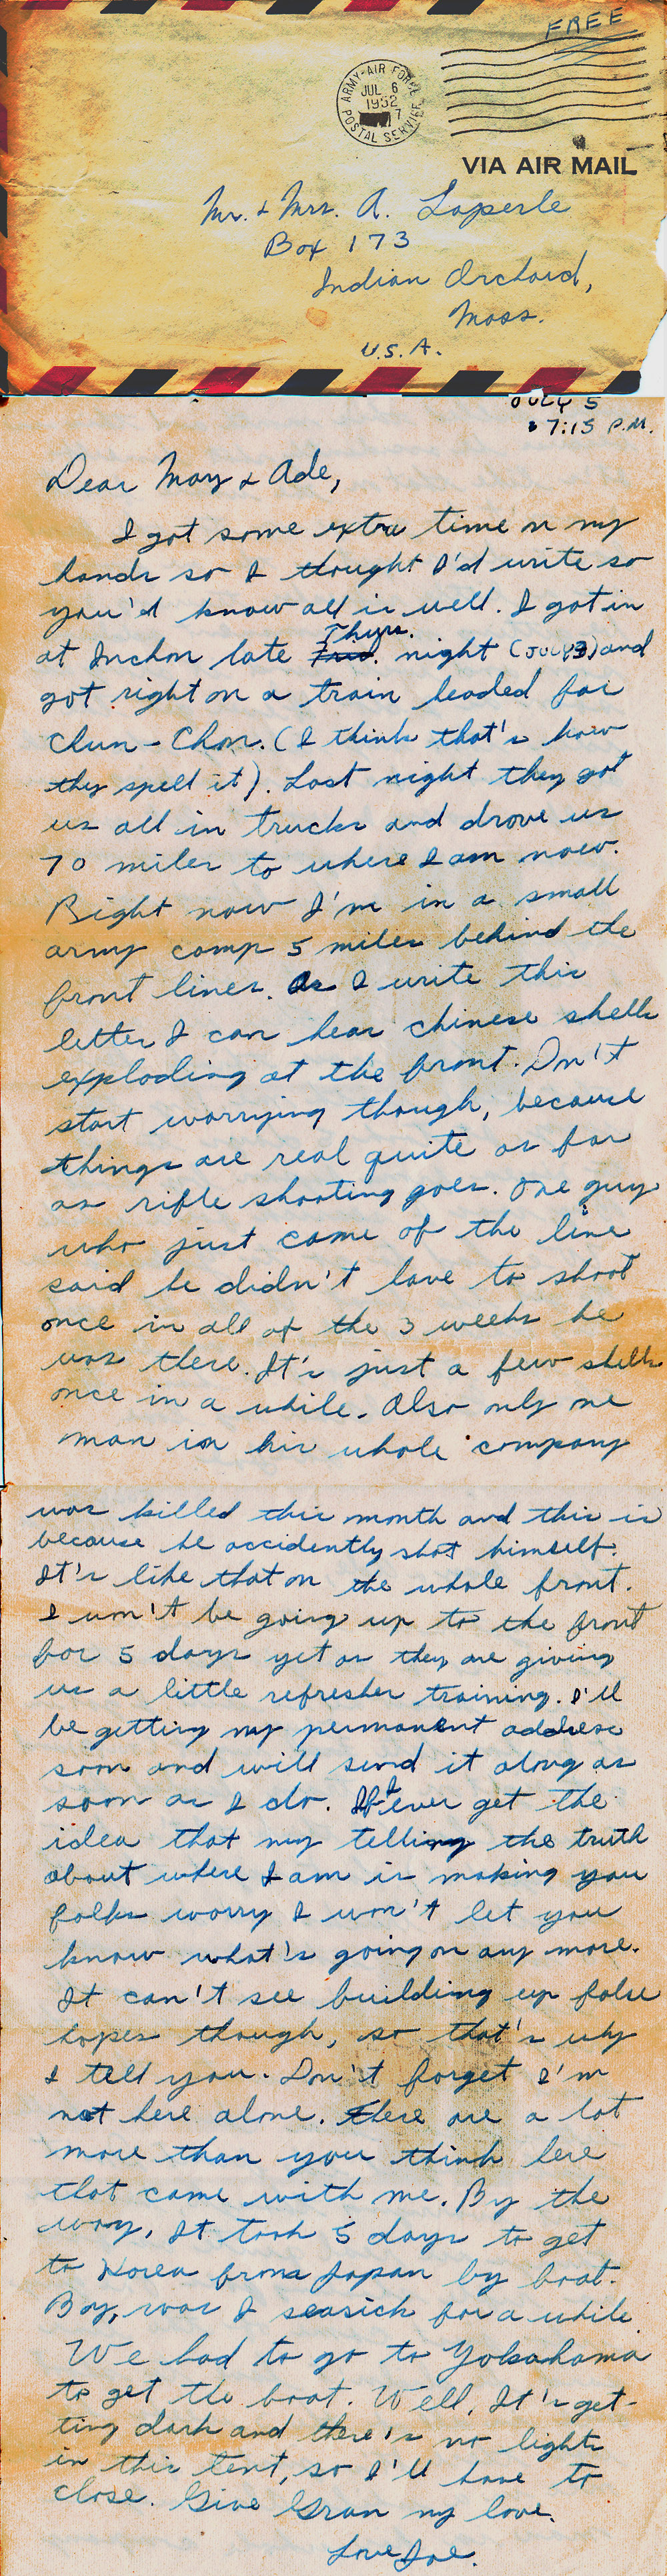 FREE
ARMY-AIR FORCE
JUL 6
1952
7
POSTAL SERVICE
VIA AIR MAIL
Mr. & Mrs. A. Laperle
Box 173
Indian Orchard,
Mass.
U.S.A.
JULY 5
7:15 P.M.
Dear May & Ade,
I got some extra time on my
hands so I thought I'd write so
you'd know all is well. I got in
Thur.
at Inchon late Frid. night (JULY 3) and
got right on a train headed for
Chun-Chon. (I think that's how
they spell it). Last night they got
us all in trucks and drove us
70 miles to where I am now.
Right now I'm in a small
army camp 5 miles behind the
front lines. As I write this
letter I can hear chinese shells
exploding at the front. Don't
start worrying though, because
things are real quite as far
as rifle shooting goes. One guy
who just came of the line
said he didn't have to shoot
once in all of the 3 weeks he
was there. It's just a few shells
once in a while. Also only one
man in his whole company
was killed this month and this is
because he accidently shot himself.
It's like that on the whole front.
I won't be going up to the front
for 5 days yet as they are giving
us a little refresher training. I'll
be getting my permanent address
soon and will send it along as
soon as I do. If I ever get the
idea that my telling the truth
about where I am is making you
folks worry I won't let you
know what's going on any more.
It can't see building up false
hopes though, so that's why
I tell you. Don't forget I'm
not here alone. There are a lot
more than you think here
that came with me. By the
way, It took 5 days to get
to Korea from Japan by boat.
Boy, was I seasick for a while.
We had to go to Yokahama
to get the boat. Well, It's get-
ting dark and there's no lights
in this tent, so I'll have to
close. Give Gran my love.
Love Joe.